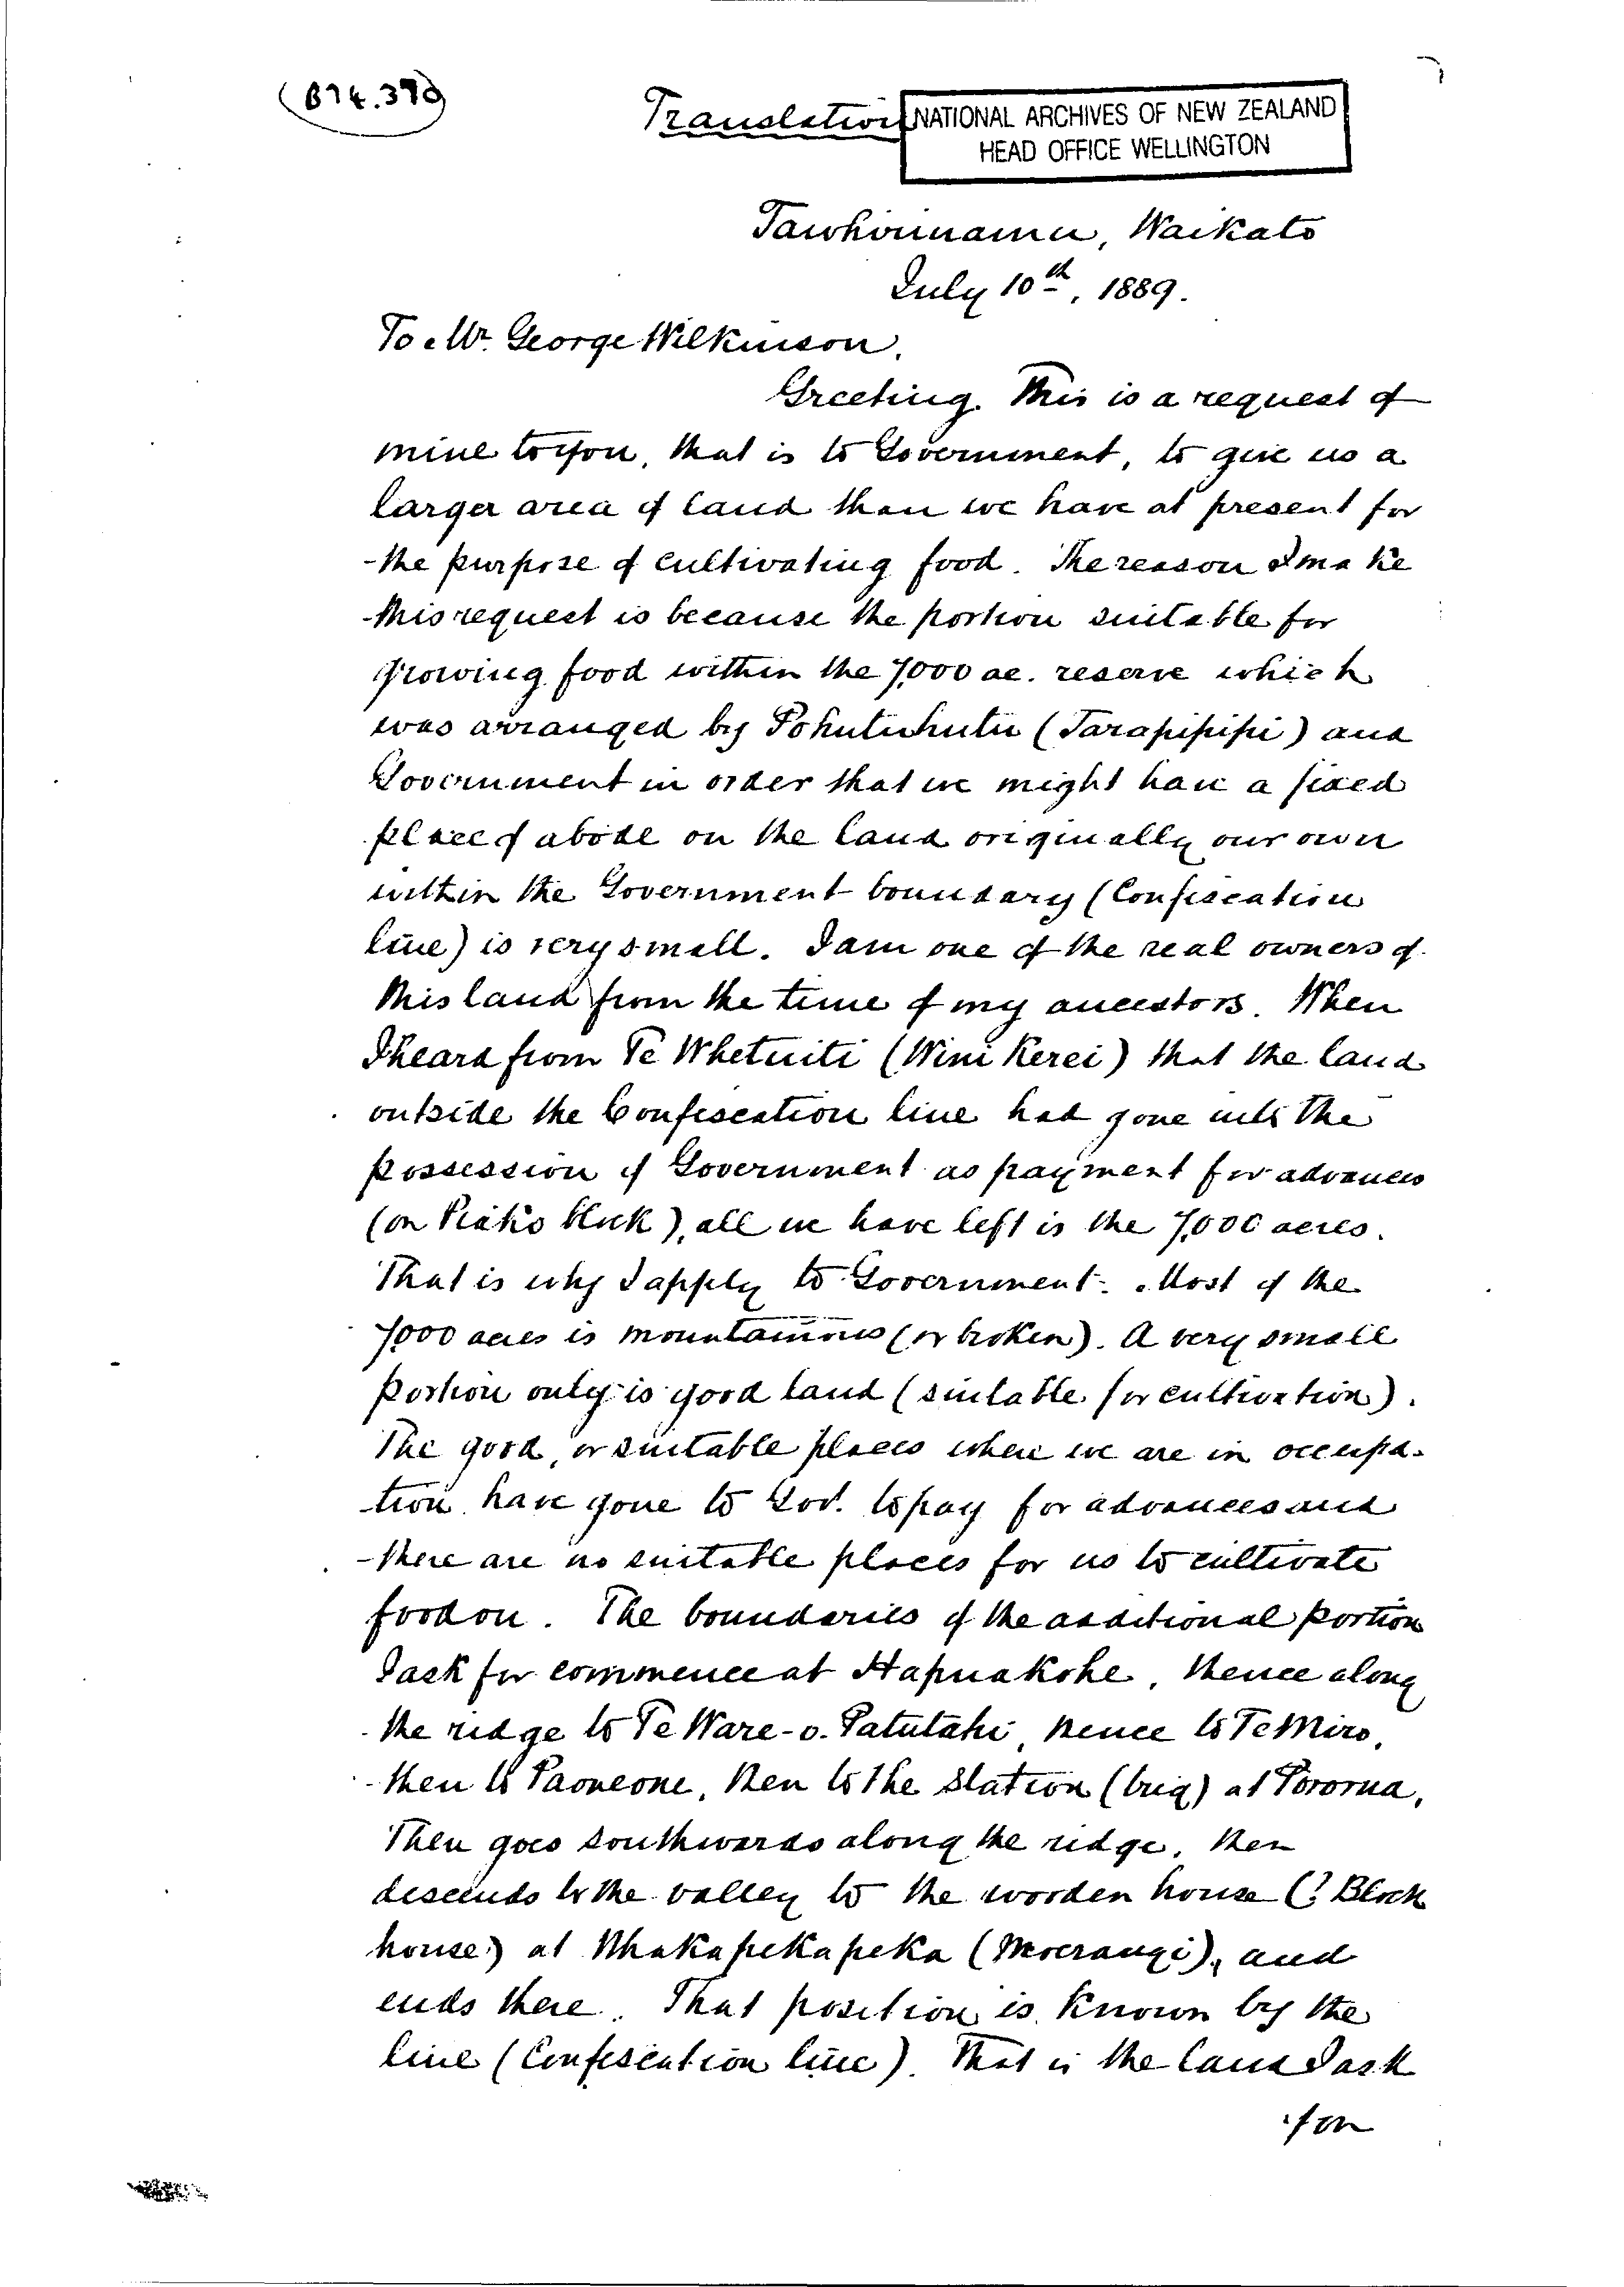 (B74.370)
Translation
NATIONAL ARCHIVES OF NEW ZEALAND
HEAD OFFICE WELLINGTON
Waikato
July 10th, 1889.
To Mr. George Wilkinson.
Greeting. This is a request of
mine to you, that is to Government, to give us a
larger area of land than we have at present for
the purpose of cultivating food. The reason I make
this request is because the portion suitable for
growing food within the 7,000 ac. reserve which
was arranged by Pohutuhutu (Tarapipipi) and
Government in order that we might have a fixed
place of abode on the land originally our own
within the Government boundary (Confiscation
line) is very small. I am one of the real owners of
this land from the time of my ancestors. When
I heard from Te Whetuiti (Wini Kerei) that the land
outside the Confiscation line had gone into the
possession of Government as payment for advances
(on Piako block), all we have left is the 7,000 acres.
That is why I apply to Government. Most of the
7000 acres is mountainous (or broken). A very small
portion only is good land (suitable for cultivation).
The good, or suitable places where we are in occupa-
tion have gone to Gov. to pay for advances and
there are no suitable places for us to cultivate
food on. The boundaries of the additional portion
I ask for commence at Hapuakohe, thence along
the ridge to Te Ware-o-Patutahi, thence to Te Miro,
then to Paoneone, then to the Station (trig) at Pororua,
Then goes southwards along the ridge, then
descends to the valley to the wooden house (? Block
house) at Whakapekapeka (Moerangi), and
ends there. That position is known by the
line (Confiscation line). That is the land I ask
for